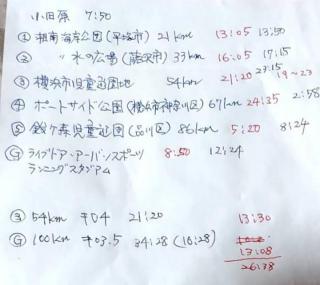 小田原 7:50
① 湘南海岸公園(平塚市) 21km 13:05 13:50
② 〃 水の広場(藤沢市) 33km 16:05 17:15
③ 横浜市児童遊園地 54km 21:20 23:15 19~23
④ ポートサイド公園(横浜市神奈川区) 67km 24:35 2:58
⑤ 鈴ヶ森児童遊園(品川区) 86km 5:20 8:24
Ⓖ ライブドア・アーバンスポーツ 8:50 12:24
ランニングスタジアム
③ 54km 704 21:20 13:30
Ⓖ 100km 703.5 34:28 (10:28)
13:08
26:38